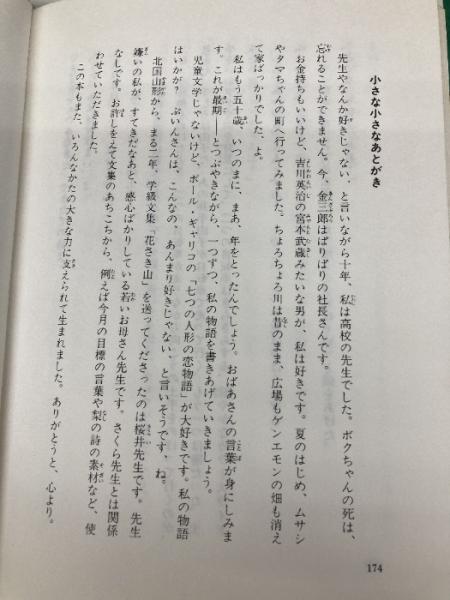 小さな小さなあとがき
先生やなんか好きじゃない、と言いながら十年、私は高校の先生でした。ボクちゃんの死は、
忘れることができません。今、金三郎はばりばりの社長さんです。
お金持ちもいいけど、吉川英治の宮本武蔵みたいな男が、私は好きです。夏のはじめ、ムサシ
やタマちゃんの町へ行ってみました。ちょろちょろ川は昔のまま、広場もゲンエモンの畑も消え
て家ばっかりでした、よ。
私はもう五十歳、いつのまに、まあ、年をとったんでしょう。おばあさんの言葉が身にしみま
す。これが最期――とつぶやきながら、一つずつ、私の物語を書きあげていきましょう。
児童文学じゃないけど、ポール・ギャリコの「七つの人形の恋物語」が大好きです。私の物語
はいかが？ ぷいんさんは、こんなの、あんまり好きじゃない、と言いそうです、ね。
北国山形から、まる二年、学級文集「花さき山」を送ってくださったのは桜井先生です。先生
嫌いの私が、すてきだなあと、感心ばかりしている若いお母さん先生です。さくら先生とは関係
なしです。お許しをえて文集のあちこちから、例えば今月の目標の言葉や梨の詩の素材など、使
わせていただきました。
この本もまた、いろんなかたの大きな力に支えられて生まれました。ありがとうと、心より。
174